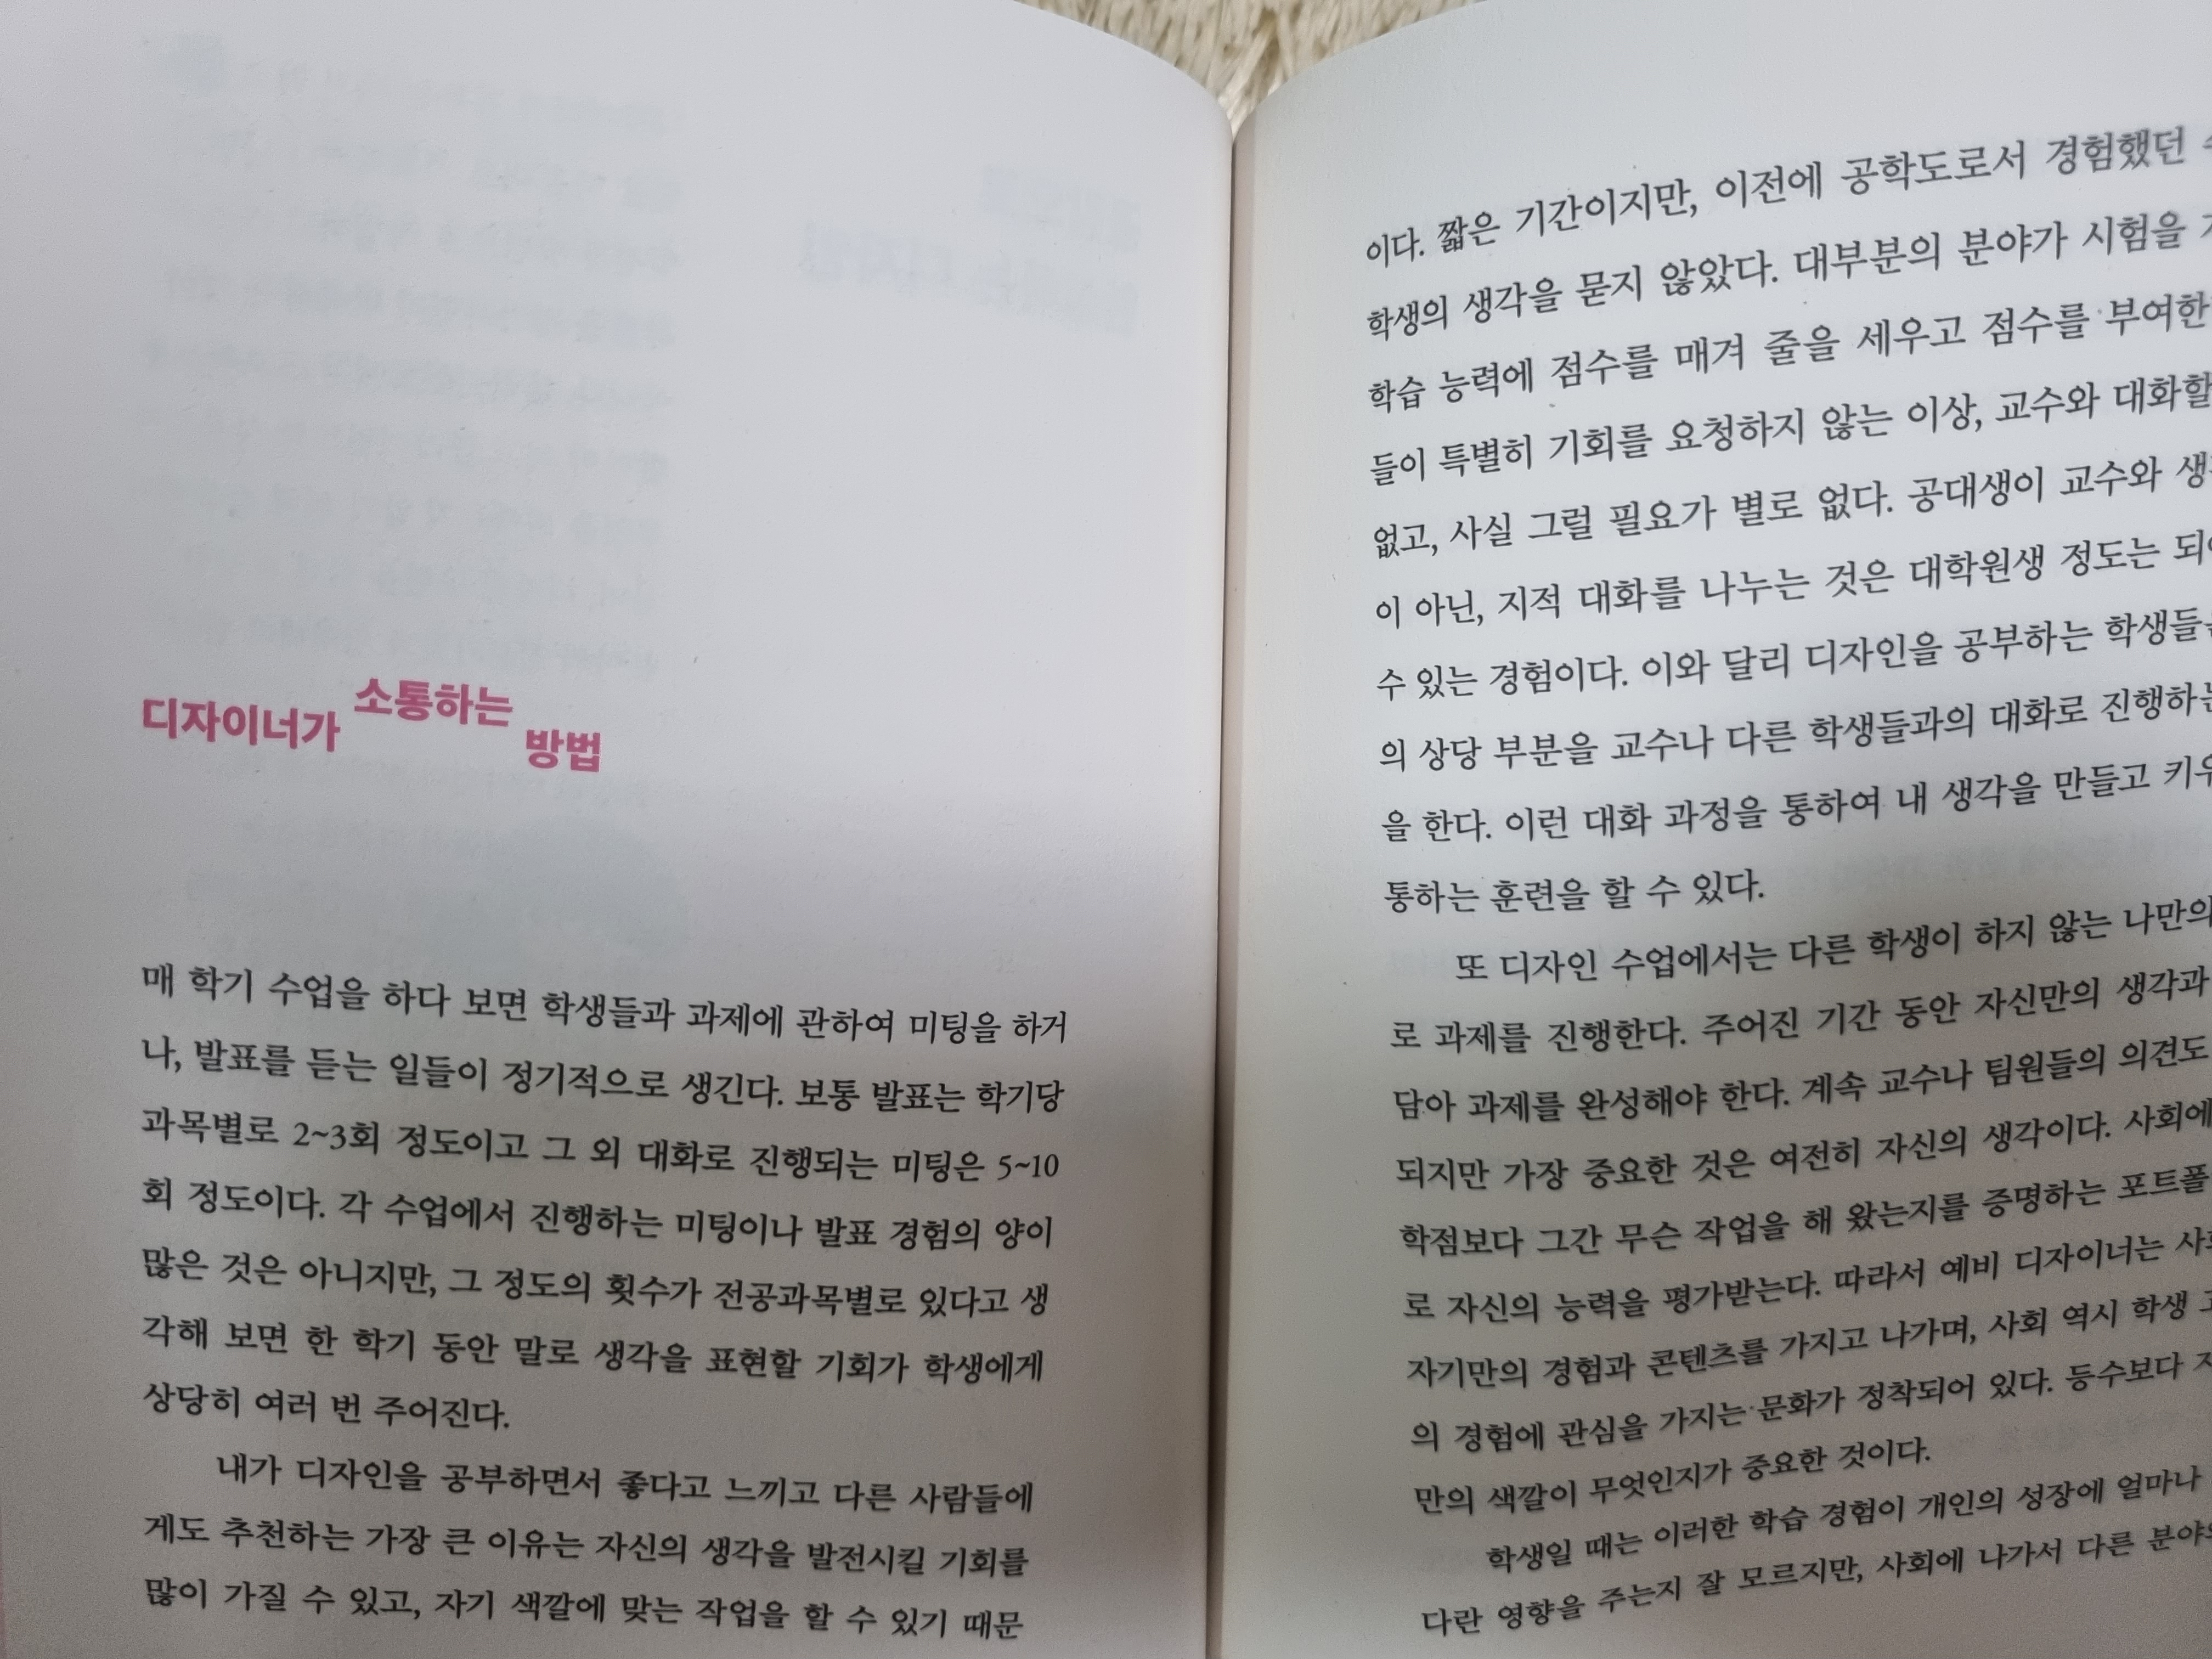 디자이너가 소통하는 방법
매 학기 수업을 하다 보면 학생들과 과제에 관하여 미팅을 하거
나, 발표를 듣는 일들이 정기적으로 생긴다. 보통 발표는 학기당
과목별로 2~3회 정도이고 그 외 대화로 진행되는 미팅은 5~10
회 정도이다. 각 수업에서 진행하는 미팅이나 발표 경험의 양이
많은 것은 아니지만, 그 정도의 횟수가 전공과목별로 있다고 생
각해 보면 한 학기 동안 말로 생각을 표현할 기회가 학생에게
상당히 여러 번 주어진다.
내가 디자인을 공부하면서 좋다고 느끼고 다른 사람들에
게도 추천하는 가장 큰 이유는 자신의 생각을 발전시킬 기회를
많이 가질 수 있고, 자기 색깔에 맞는 작업을 할 수 있기 때문
이다. 짧은 기간이지만, 이전에 공학도로서 경험했던
학생의 생각을 묻지 않았다. 대부분의 분야가 시험을
학습 능력에 점수를 매겨 줄을 세우고 점수를 부여한
들이 특별히 기회를 요청하지 않는 이상, 교수와 대화할
없고, 사실 그럴 필요가 별로 없다. 공대생이 교수와
이 아닌, 지적 대화를 나누는 것은 대학원생 정도는
수 있는 경험이다. 이와 달리 디자인을 공부하는 학생들
의 상당 부분을 교수나 다른 학생들과의 대화로 진행하
을 한다. 이런 대화 과정을 통하여 내 생각을 만들고
통하는 훈련을 할 수 있다.
또 디자인 수업에서는 다른 학생이 하지 않는 나만의
로 과제를 진행한다. 주어진 기간 동안 자신만의 생각과
담아 과제를 완성해야 한다. 계속 교수나 팀원들의 의견도
되지만 가장 중요한 것은 여전히 자신의 생각이다. 사회에
학점보다 그간 무슨 작업을 해 왔는지를 증명하는 포트폴
로 자신의 능력을 평가받는다. 따라서 예비 디자이너는
자기만의 경험과 콘텐츠를 가지고 나가며, 사회 역시 학생
의 경험에 관심을 가지는 문화가 정착되어 있다. 등수보다
만의 색깔이 무엇인지가 중요한 것이다.
학생일 때는 이러한 학습 경험이 개인의 성장에 얼마나
다란 영향을 주는지 잘 모르지만, 사회에 나가서 다른